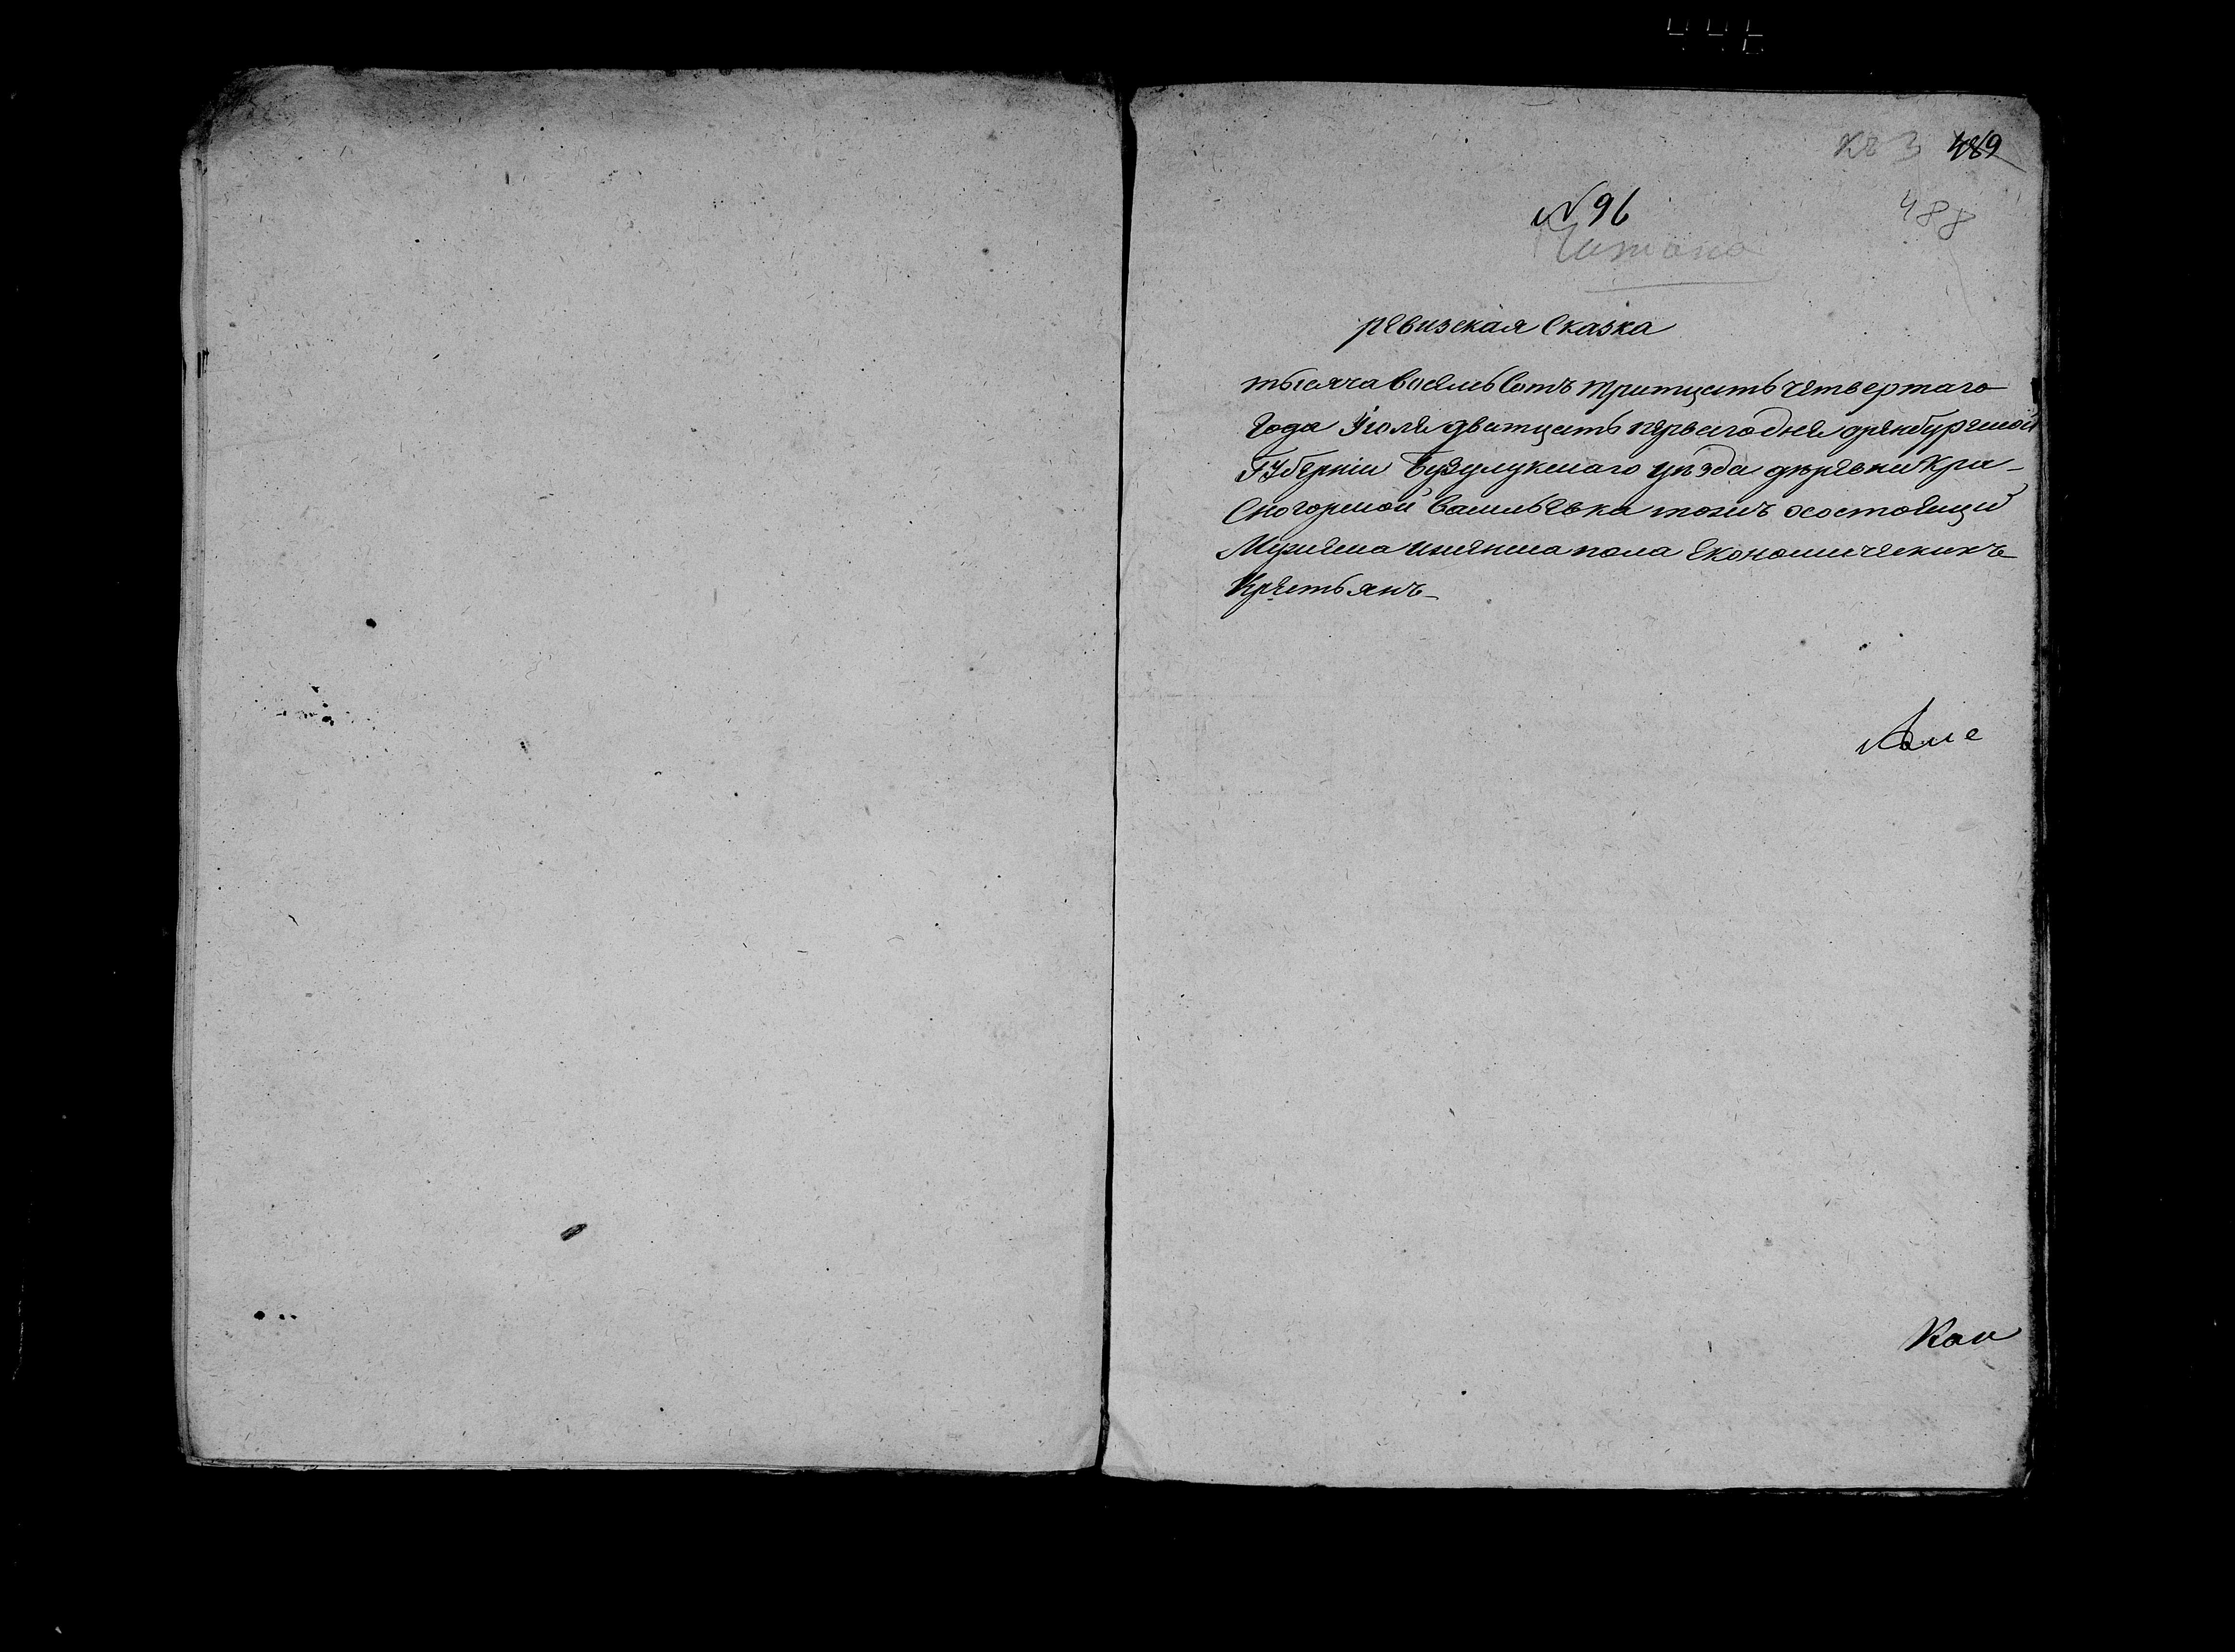 Къ 3 489
№ 96
488
Читано
ревизская сказка
тысяча восемьсотъ тритцать четвертаго
года Іюля дватцать перваго дня оренбурской
Губерніи Бузулукскаго уѣзда деревни Кра-
сногорской Васильевка тожъ осостоящи
Мужеска и женска пола економическихъ
Крестьянъ